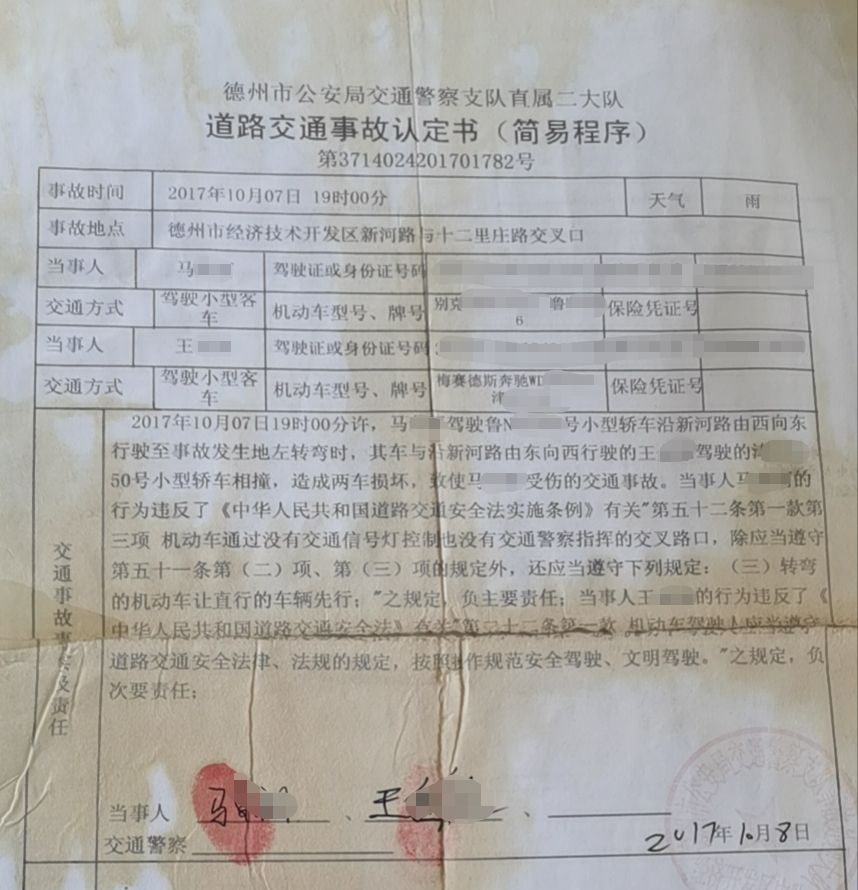 德州市公安局交通警察支队直属二大队
道路交通事故认定书（简易程序）
第3714024201701782号
事故时间 2017年10月07日 19时00分 天气 雨
事故地点 德州市经济技术开发区新河路与十二里庄路交叉口
当事人 马 驾驶证或身份证号码
交通方式 驾驶小型客车 机动车型号、牌号 别克 鲁 6 保险凭证号
当事人 王 驾驶证或身份证号码
交通方式 驾驶小型客车 机动车型号、牌号 梅赛德斯奔驰WD 津 保险凭证号
交通事故事实及责任
2017年10月07日19时00分许，马 驾驶鲁N 号小型轿车沿新河路由西向东
行驶至事故发生地左转弯时，其车与沿新河路由东向西行驶的王 驾驶的
50号小型轿车相撞，造成两车损坏，致使马 受伤的交通事故。当事人马 的
行为违反了《中华人民共和国道路交通安全法实施条例》有关"第五十二条第一款第
三项 机动车通过没有交通信号灯控制也没有交通警察指挥的交叉路口，除应当遵守
第五十一条第（二）项、第（三）项的规定外，还应当遵守下列规定：（三）转弯
的机动车让直行的车辆先行；"之规定，负主要责任；当事人王 的行为违反了《
中华人民共和国道路交通安全法》有关"第二十二条第一款 机动车驾驶人应当遵守
道路交通安全法律、法规的规定，按照操作规范安全驾驶、文明驾驶。"之规定，负
次要责任；
当事人 马 、 王 、
交通警察
2017年10月8日